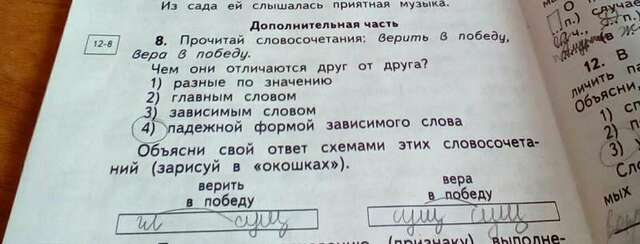 Из сада ей слышалась приятная музыка.
Дополнительная часть
12-8
8. Прочитай словосочетания: верить в победу,
вера в победу.
Чем они отличаются друг от друга?
1) разные по значению
2) главным словом
3) зависимым словом
4) падежной формой зависимого слова
Объясни свой ответ схемами этих словосочета-
ний (зарисуй в «окошках»).
верить
в победу
вера
в победу
гл сущ
сущ сущ
(признаку) выполне-
О
п.) случае
12. В
личить па
Объясни,
1) сп
2)
3)
Сло
мых